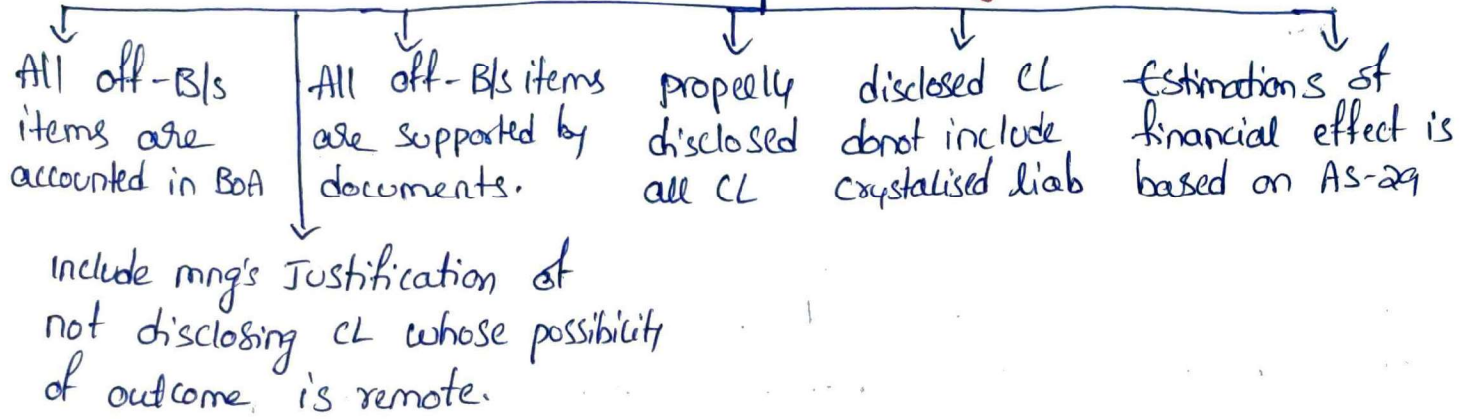 All off-B/s
items are
accounted in BoA
All off-B/s items
are supported by
documents.
properly
disclosed
all CL
disclosed CL
donot include
crystalised liab
Estimations of
financial effect is
based on AS-29
include mng's Justification of
not disclosing CL whose possibility
of outcome is remote.